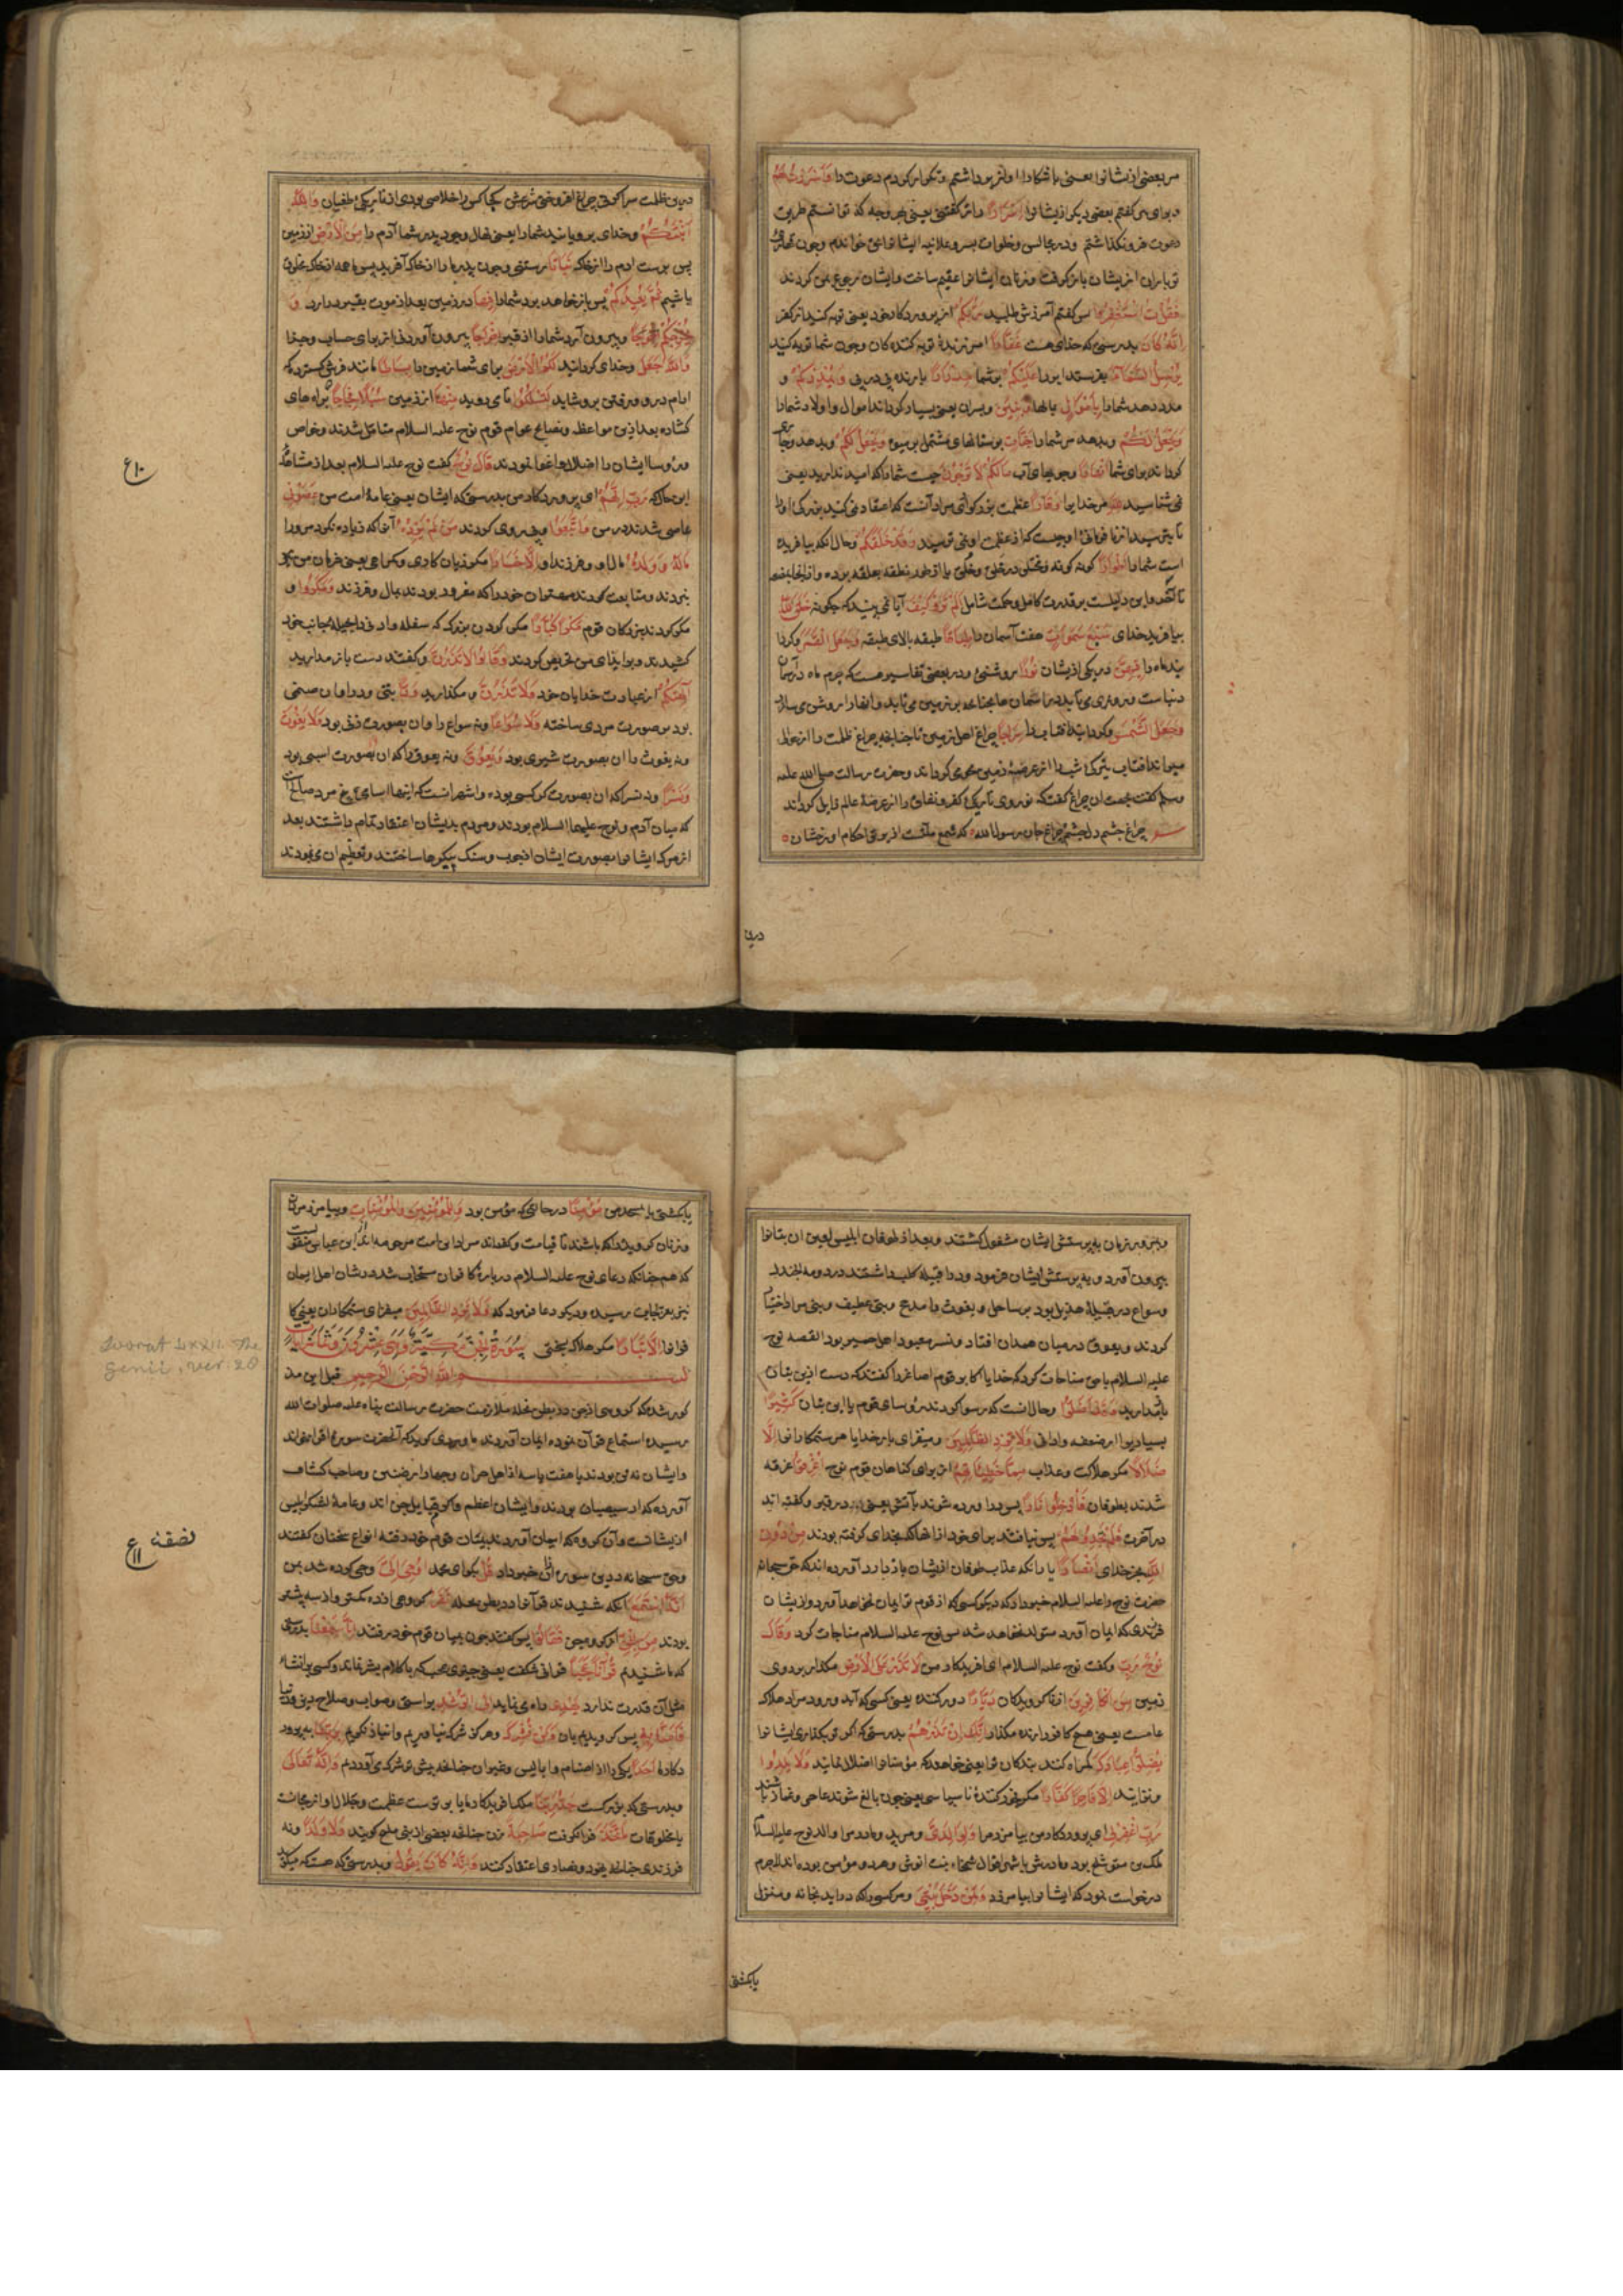 مر بعضی از نشانرا یعنی باشکارا اواز برداشتم و تکرار کردم دعوت را وَاَسْرَرْتُ لَهُمْ
و برای می کفتم بعضی دیکر از یشانرا اِسْرَارًا راز کفتنی یعنی بهر وجه که توانستم طریق
دعوت فرو نکذاشتم و در مجالس و خلوات بسر و علانیه ایشانرا می خواندم وچون
تو باران از یشان باز کرفت و زنان ایشانرا عقیم ساخت و ایشان رجوع من کردند
فَقُلْتُ اسْتَغْفِرُوا پس کفتم آمرزش طلبید رَبَّكُمْ از پروردکار خود یعنی توبه کنید از کفر
اِنَّهُ كَانَ بدرستی که خدای هست غَفَّارًا آمرزندهٔ توبه کننده کان وچون شما توبه کنید
يُرْسِلِ السَّمَآءَ بفرستد ابر را عَلَيْكُمْ بر شما مِدْرَارًا بارنده پی در پی وَيُمْدِدْكُمْ و
مدد دهد شمارا بِاَمْوَالٍ بمالها وَبَنِينَ و پسران یعنی بسیار کرداند اموال و اولاد شمارا
وَيَجْعَلْ لَكُمْ و بدهد مر شمارا جَنَّاتٍ بوستانهای مشتمل بر میوه وَيَجْعَلْ لَكُمْ و بدهد وجاری
کرداند برای شما اَنْهَارًا وجویهای آب مَالَكُمْ لَا تَرْجُونَ چیست شمارا که امید ندارید یعنی
نمی شناسید لِلّٰهِ مر خدایرا وَقَارًا عظمت بزرکواری مراد آنست که اعتقاد نمی کنید بزرکی اورا
تا بترسید از نا فرمانی او چیست که از عظمت او نمی ترسید وَقَدْ خَلَقَكُمْ وحال انکه بیافریده
است شمارا اَطْوَارًا کونه کونه و مختلف در خلق و خلق یا از طور نطفه بعلقه برده و از انجا بمضغه
تا آخر و این دلیلست بر قدرت کامل و حکمت شامل اَلَمْ تَرَوْا كَيْفَ آیا نمی بینید که چکونه خَلَقَ اللّٰهُ
بیافرید خدای سَبْعَ سَمٰوَاتٍ هفت آسمان را طِبَاقًا طبقه بالای طبقه وَجَعَلَ الْقَمَرَ و کردا
نید ماه را فِيهِنَّ در یکی از یشان نُورًا روشنی و در بعضی تفاسیر هست که جرم ماه در آسمان
دنیاست
وَجَعَلَ الشَّمْسَ و کردانید افتاب را سِرَاجًا چراغ اهل زمین تا چنانچه چراغ ظلمت را از حوالی
میراند افتاب نیز تیرکی شب را از عرضهٔ زمین محو می کرداند و حضرت رسالت صلی الله علیه
وسلم کفت بجهت ان چراغ کفت که نور وی تاریکی کفر و نفاق را از عرضهٔ عالم زایل کرداند
چراغ چشم دل چشم چراغ جان رسول الله که شمع ملتست از پرتو احکام او رخشان
درین
درین ظلمت سرا کر نه چراغ افروختی شرعش کجا کس را خلاصی بودی از تاریکی طغیان وَاللّٰهُ
اَنْبَتَكُمْ و خدای برویانید شمارا یعنی نهال وجود پدر شما آدم را مِنَ الْاَرْضِ از زمین
پس برست ادم را از خاک نَبَاتًا رستنی وچون پدر مارا از خاک آفرید پس ما همه از خاک مخلوق
باشیم ثُمَّ يُعِيدُكُمْ پس باز خواهد برد شمارا فِيهَا در زمین بعد از موت بقبر در ارد وَ
يُخْرِجُكُمْ اِخْرَاجًا و بیرون آرد شمارا از قبر اِخْرَاجًا بیرون آوردنی از برای حساب و جزا
وَاللّٰهُ جَعَلَ و خدای کردانید لَكُمُ الْاَرْضَ برای شما زمین را بِسَاطًا مانند فرشی کسترده که
ارام در و رفتن بر و شاید لِتَسْلُكُوا تا می روید مِنْهَا از زمین سُبُلًا فِجَاجًا براه های
کشاده بعد ازین مواعظ و نصایح عوام قوم نوح علیه السلام متامل شدند و خواص
و رؤسا ایشان را اضلال و اغوا نمودند قَالَ نُوحٌ کفت نوح علیه السلام بعد از مشاهدهٔ
این حال که رَبِّ اِنَّهُمْ ای پروردکار من بدرستی که ایشان یعنی عامهٔ امت من عَصَوْنِي
عاصی شدند در من وَاتَّبَعُوا و پی روی کردند مَنْ لَمْ يَزِدْهُ آنرا که زیاده نکرد مر ورا
مَالُهُ وَوَلَدُهُ مال او و فرزند او اِلَّا خَسَارًا مکر زیان کاری و کمراهی یعنی فرمان من
نبردند و متابعت کردند مهتران خود را که مغرور بودند بمال و فرزند وَمَكَرُوا و
مکر کردند بزرکان قوم مَكْرًا كُبَّارًا مکر کردن بزرک که سفله و ادنی را بحیله بجانب خود
کشیدند و بر ایذای من تحریص کردند وَقَالُوا لَا تَذَرُنَّ و کفتند دست باز مدارید
آلِهَتَكُمْ از عبادت خدایان خود وَلَا تَذَرُنَّ و مکذارید وَدًّا بتی ود را و ان صنمی
بود بر صورت مردی ساخته وَلَا سُوَاعًا و نه سواع را و ان بصورت زنی بود وَلَا يَغُوثَ
و نه یغوث را ان بصورت شیری بود وَيَعُوقَ و نه یعوق را که ان بصورت اسبی بود
وَنَسْرًا و نه نسر را که ان بصورت کرکسی بوده و اشهر انست که اینها اسامی پنج مرد صالح است
که میان آدم و نوح علیهما السلام بودند و مردم بدیشان اعتقاد تمام داشتند بعد
از مرک ایشانرا بصورت ایشان از چوب و سنک پیکرها ساختند و تعظیم ان می نمودند
١٠ ع
و بمرور زمان به پرستش ایشان مشغول کشتند و بعد از طوفان ابلیس لعین ان بتانرا
بیرون آورد و به پرستش ایشان فرمود و ود را قبیلهٔ کلب داشتند در دومة الجندل
و سواع در قبیلهٔ هذیل بود بر ساحل و یغوث را مدحج و بنی عطیف و بنی مراد اختیار
کردند و یعوق در میان همدان افتاد و نسر معبود اهل حمیر بود القصه نوح
علیه السلام با حق مناجات کرد که خدایا اکابر قوم اصاغر را کفتند که دست ازین بتان
باز مدارید وَقَدْ اَضَلُّوا وحال انست که رسوا کردند رؤسای قوم یا این بتان كَثِيرًا
بسیاریرا از ضعفه و ادانی وَلَا تَزِدِ الظَّالِمِينَ و میفزای بار خدایا مر ستمکارانرا اِلَّا
ضَلَالًا مکر هلاکت و عذاب مِمَّا خَطِيئَاتِهِمْ از برای کناهان قوم نوح اُغْرِقُوا غرقه
شدند بطوفان فَاُدْخِلُوا نَارًا پس در آورده شوند بآتش یعنی در قبر و کفته اند
در آخرت فَلَمْ يَجِدُوا لَهُمْ پس نیافتند برای خود از انها که بخدای کرفته بودند مِنْ دُونِ
اللّٰهِ بجز خدای اَنْصَارًا یارانکه عذاب طوفان ازیشان باز دارد آورده اند که حق سبحانه
حضرت نوح را علیه السلام خبر داد که دیکر کسی که از قوم تو ایمان نخواهد آورد و ازیشان
فرزندی که ایمان آورد متولد نخواهد شد پس نوح علیه السلام مناجات کرد وَقَالَ
نُوحٌ رَبِّ و کفت نوح علیه السلام ای افریدکار من لَا تَذَرْ عَلَى الْاَرْضِ مکذار بر روی
زمین مِنَ الْكَافِرِينَ از ناکرویدکان دَيَّارًا دور کننده یعنی کسی که آید و رود مراد هلاک
عامست یعنی هیچ کافر را زنده مکذار اِنَّكَ اِنْ تَذَرْهُمْ بدرستی که اکر تو بکذاری ایشانرا
يُضِلُّوا عِبَادَكَ کمراه کنند بندکان ترا یعنی خواهند که مؤمنانرا اضلال نمایند وَلَا يَلِدُوا
و نزایند اِلَّا فَاجِرًا كَفَّارًا مکر فجور کنندهٔ ناسپاسی یعنی چون بالغ شوند عاصی و غماز باشند
رَبِّ اغْفِرْ لِي ای پروردکار من بیامرز مرا وَلِوَالِدَيَّ و مر پدر و مادر مرا والد نوح علیه السلام
لمک بن متوشلخ بود و مادرش باشهر اقوال شمخاء بنت انوش و هر دو مؤمن بوده اند لاجرم
درخواست نمود که ایشانرا بیامرزد وَلِمَنْ دَخَلَ بَيْتِيَ و مر کسی را که در آید بخانه و منزل
یا بکشتی
یا بکشتی یا بمسجد من مُؤْمِنًا در حالتی که مؤمن بود وَلِلْمُؤْمِنِينَ وَالْمُؤْمِنَاتِ و بیامرز مردان
و زنان کرویده را که باشند تا قیامت و کفته اند مراد این امت مرحومه اند از ابن عباس منقولست
که هم چنانکه دعای نوح علیه السلام در بارهٔ کافران مستجاب شد در شان اهل ایمان
نیز بعز اجابت رسیده و دیکر دعا فرمود که وَلَا تَزِدِ الظَّالِمِينَ میفزای ستمکاران یعنی کا
فرانرا اِلَّا تَبَارًا مکر هلاک بسختی سُورَةُ الْجِنِّ مَكِّيَّةٌ وَهِيَ عِشْرُونَ وَثَمَانَ اٰيَاتٍ
بسم الله الرحمن الرحيم قبل ازین مذ
کور شد که کروهی از جن در بطن نخله بملازمت حضرت رسالت پناه علیه صلوات الله
رسیده استماع قرآن نموده ایمان آوردند ماوردی کوید که آنحضرت سورهٔ اقرا میخواند
و ایشان نه تن بودند یا هفت یا سه از اهل حران و چهار از نصیبین و صاحب کشاف
آورده که از شیصبان بودند و ایشان اعظم و اکثر قبایل جن اند و عامهٔ لشکر ابلیس
از یشانست و آن کروه که ایمان آوردند بمیان قوم خود رفته انواع سخنان کفتند
و حق سبحانه در این سوره از ان خبر داد قُلْ بکو ای محمد اُوحِيَ اِلَيَّ وحی کرده شد بمن
اَنَّهُ اسْتَمَعَ آنکه شنیدند قرآنرا در بطن نخله نَفَرٌ کروهی از ده کمتر و از سه بیشتر
بودند مِنَ الْجِنِّ از کروه جن فَقَالُوا پس کفتند چون بمیان قوم خود رفتند اِنَّا سَمِعْنَا بدرستی
که ما شنیدیم قُرْاٰنًا عَجَبًا قرانی شکفت یعنی چیزی عجب که بکلام بشر نماند و کسی بر انشاء
مثل آن قدرت ندارد يَهْدِي راه می نماید اِلَى الرُّشْدِ براستی و صواب و صلاح دین و دنیا
فَاٰمَنَّا بِهِ پس کرویدیم بان وَلَنْ نُشْرِكَ و هرکز شرک نیاوریم و انباز نکوییم بِرَبِّنَا بپرورد
دکار ما اَحَدًا یکی را از اصنام و ابالیس و غیر ان چنانچه پیش تر شرک می آوردیم وَاَنَّهُ تَعَالٰى
و بدرستی که بزرکست جَدُّ رَبِّنَا ملک افریدکار ما یا برترست عظمت و جلال او از مجانست
با مخلوقات مَا اتَّخَذَ فرا نکرفت صَاحِبَةً زن چنانچه بعضی از بنی ملیح کویند وَلَا وَلَدًا و نه
فرزندی چنانچه یهود و نصاری اعتقاد کنند وَاَنَّهُ كَانَ يَقُولُ و بدرستی که هست که میکوید
Soorat LXXII. The
Genii, ver: 28
نصفه
١١ ع